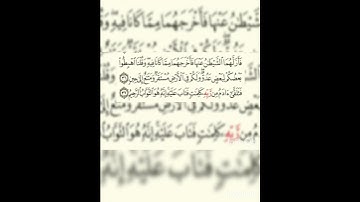 فَأَزَلَّهُمَا ٱلشَّيْطَٰنُ عَنْهَا فَأَخْرَجَهُمَا مِمَّا كَانَا فِيهِ وَقُلْنَا ٱهْبِطُوا۟
بَعْضُكُمْ لِبَعْضٍ عَدُوٌّ وَلَكُمْ فِى ٱلْأَرْضِ مُسْتَقَرٌّ وَمَتَٰعٌ إِلَىٰ حِينٍ ٣٦
فَتَلَقَّىٰٓ ءَادَمُ مِن رَّبِّهِۦ كَلِمَٰتٍ فَتَابَ عَلَيْهِ إِنَّهُۥ هُوَ ٱلتَّوَّابُ ٱلرَّحِيمُ ٣٧